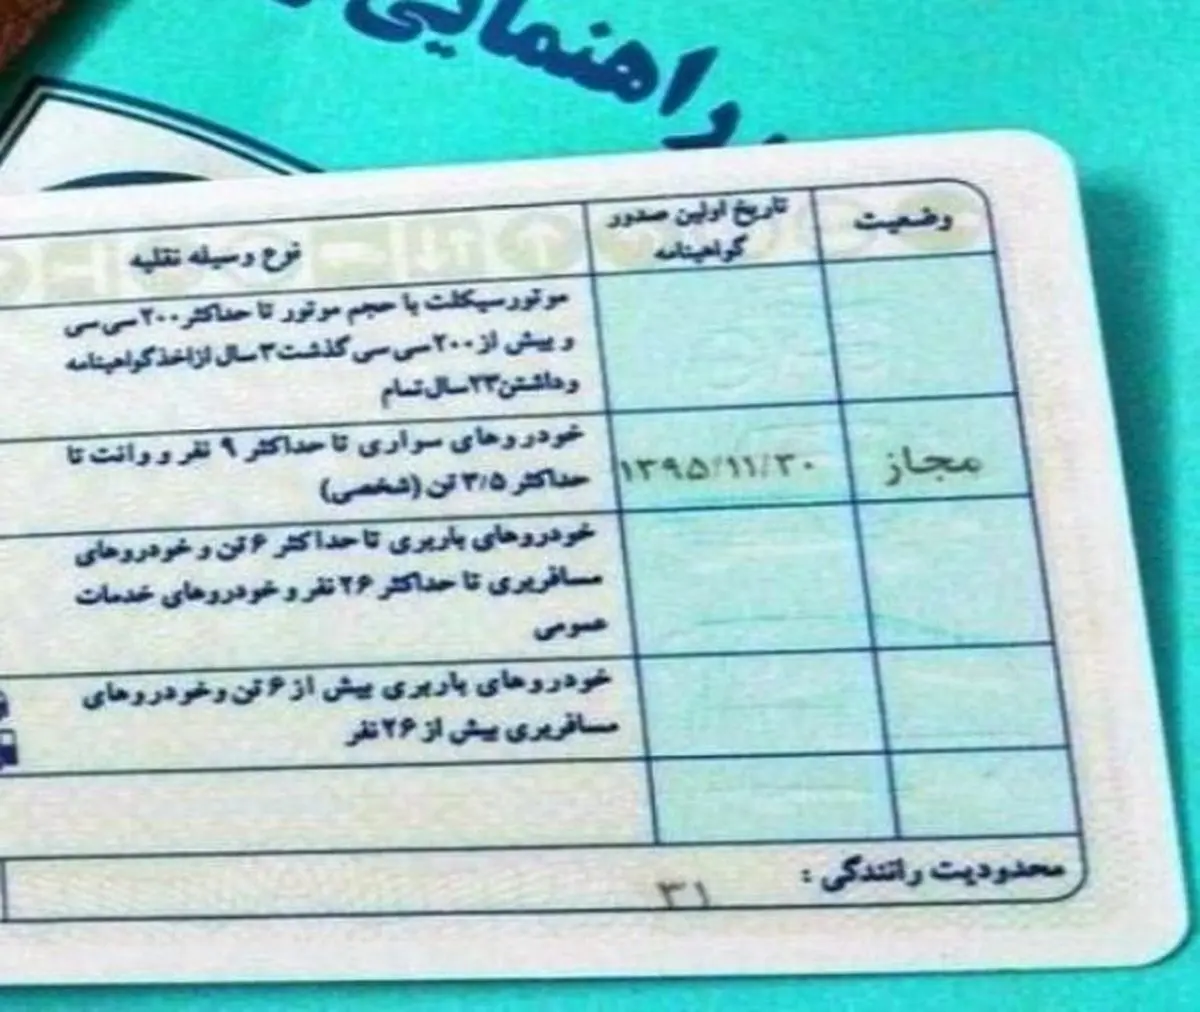 راهنمایی
وضعیت
تاریخ اولین صدور
گواهینامه
نوع وسیله نقلیه
موتورسیکلت با حجم موتور تا حداکثر ۲۰۰ سی سی
و بیش از ۲۰۰ سی سی گذشت ۳ سال از اخذ گواهینامه
و داشتن ۲۳ سال تمام
مجاز
۱۳۹۵/۱۱/۳۰
خودروهای سواری تا حداکثر ۹ نفر و وانت تا
حداکثر ۳/۵ تن (شخصی)
خودروهای باربری تا حداکثر ۶ تن و خودروهای
مسافربری تا حداکثر ۲۶ نفر و خودروهای خدمات
عمومی
خودروهای باربری بیش از ۶ تن و خودروهای
مسافربری بیش از ۲۶ نفر
محدودیت رانندگی :
۳۱